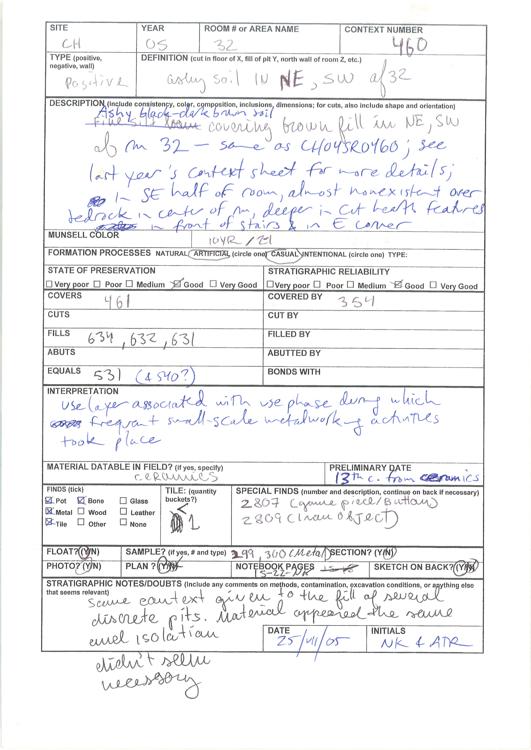 SITE YEAR ROOM # or AREA NAME CONTEXT NUMBER
CH 05 32 460
TYPE (positive, negative, wall) DEFINITION (cut in floor of X, fill of pit Y, north wall of room Z, etc.)
Positive ashy soil IN NE, SW of 32
DESCRIPTION (include consistency, color, composition, inclusions, dimensions; for cuts, also include shape and orientation)
Ashy black-dark brown soil
covering brown fill in NE, SW
of rm 32 – same as CH04SR0460; see
last year's context sheet for more details;
in SE half of room, almost nonexistent over
bedrock in center of rm, deeper in cut hearth features
in front of stairs & in E corner
MUNSELL COLOR 10YR /21
FORMATION PROCESSES NATURAL ARTIFICIAL (circle one) CASUAL INTENTIONAL (circle one) TYPE:
STATE OF PRESERVATION STRATIGRAPHIC RELIABILITY
Very poor Poor Medium Good Very Good Very poor Poor Medium Good Very Good
COVERS 461 COVERED BY 354
CUTS CUT BY
FILLS 634, 632, 631 FILLED BY
ABUTS ABUTTED BY
EQUALS 531 (& 540?) BONDS WITH
INTERPRETATION
use layer associated with use phase during which
frequent small-scale metalworking activities
took place
MATERIAL DATABLE IN FIELD? (if yes, specify) PRELIMINARY DATE
ceramics 13th c. from ceramics
FINDS (tick) TILE: (quantity buckets?) SPECIAL FINDS (number and description, continue on back if necessary)
Pot Bone Glass 2807 (game piece/button)
Metal Wood Leather 1 2809 (iron object)
Tile Other None
FLOAT? (Y/N) SAMPLE? (if yes, # and type) 299, 300 (Metal) SECTION? (Y/N)
PHOTO? (Y/N) PLAN? (Y/N) NOTEBOOK PAGES 15-22-NK SKETCH ON BACK? (Y/N)
STRATIGRAPHIC NOTES/DOUBTS (Include any comments on methods, contamination, excavation conditions, or anything else that seems relevant)
same context given to the fill of several
discrete pits. Material appeared the same
and isolation
didn't seem
necessary
DATE 25/VII/05 INITIALS NK & ATR